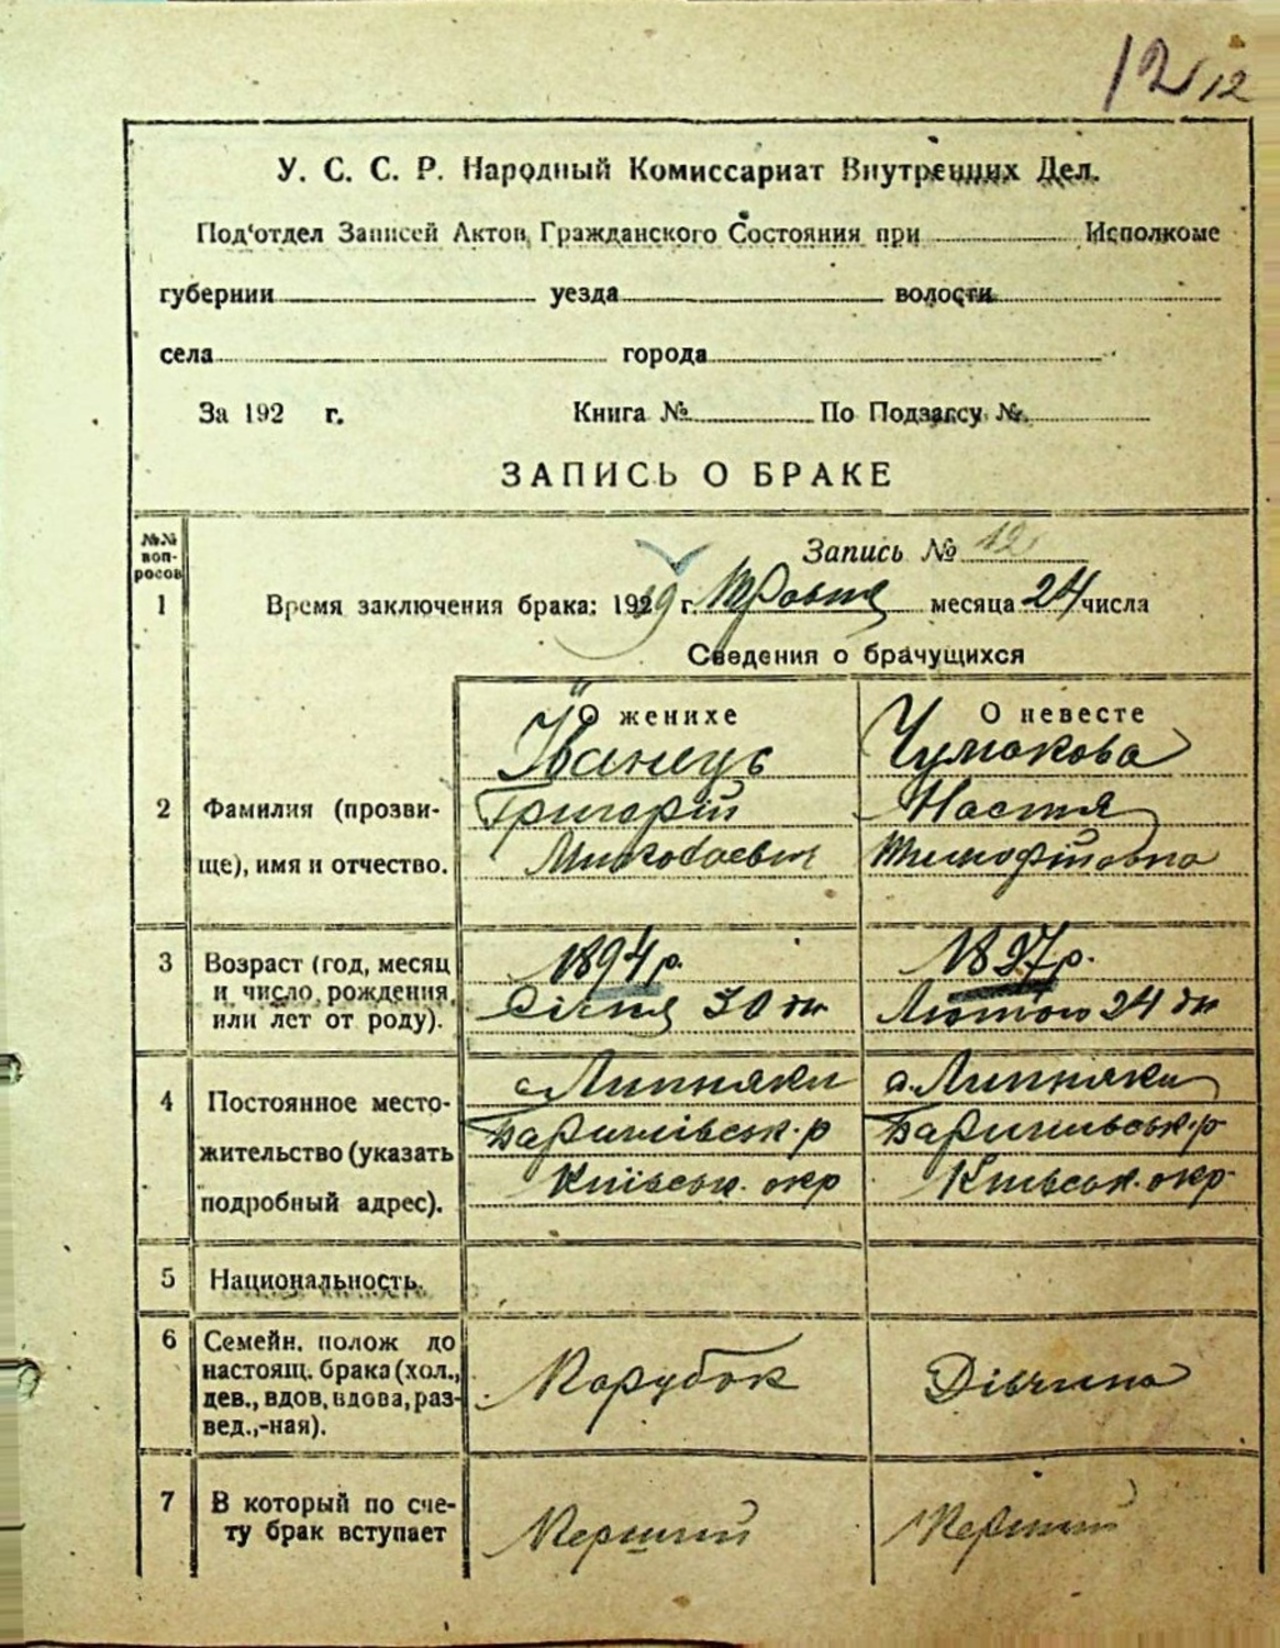 12 12
У. С. С. Р. Народный Комиссариат Внутренних Дел.
Под'отдел Записей Актов Гражданского Состояния при Исполкоме
губернии уезда волости
села города
За 192 г. Книга № По Подзагсу №
ЗАПИСЬ О БРАКЕ
№№ воп-росов
Запись № 12
1 Время заключения брака: 1929 г. Травня месяца 24 числа
Сведения о брачущихся
О женихе О невесте
Іванець Чумакова
2 Фамилия (прозви- Григорій Настя
ще), имя и отчество. Миколаевич Тимофіївна
3 Возраст (год, месяц 1894 р. 1897 р.
и число, рождения, Січня 30 дн Лютого 24 дн
или лет от роду).
с. Липняки с. Липняки
4 Постоянное место- Баришівськ. р Баришівськ. р
жительство (указать Київськ. окр Київськ. окр
подробный адрес).
5 Национальность.
6 Семейн. полож до
настоящ. брака (хол., Парубок Дівчина
дев., вдов, вдова, раз-
вед.,-ная).
7 В который по сче- Перший Перший
ту брак вступает